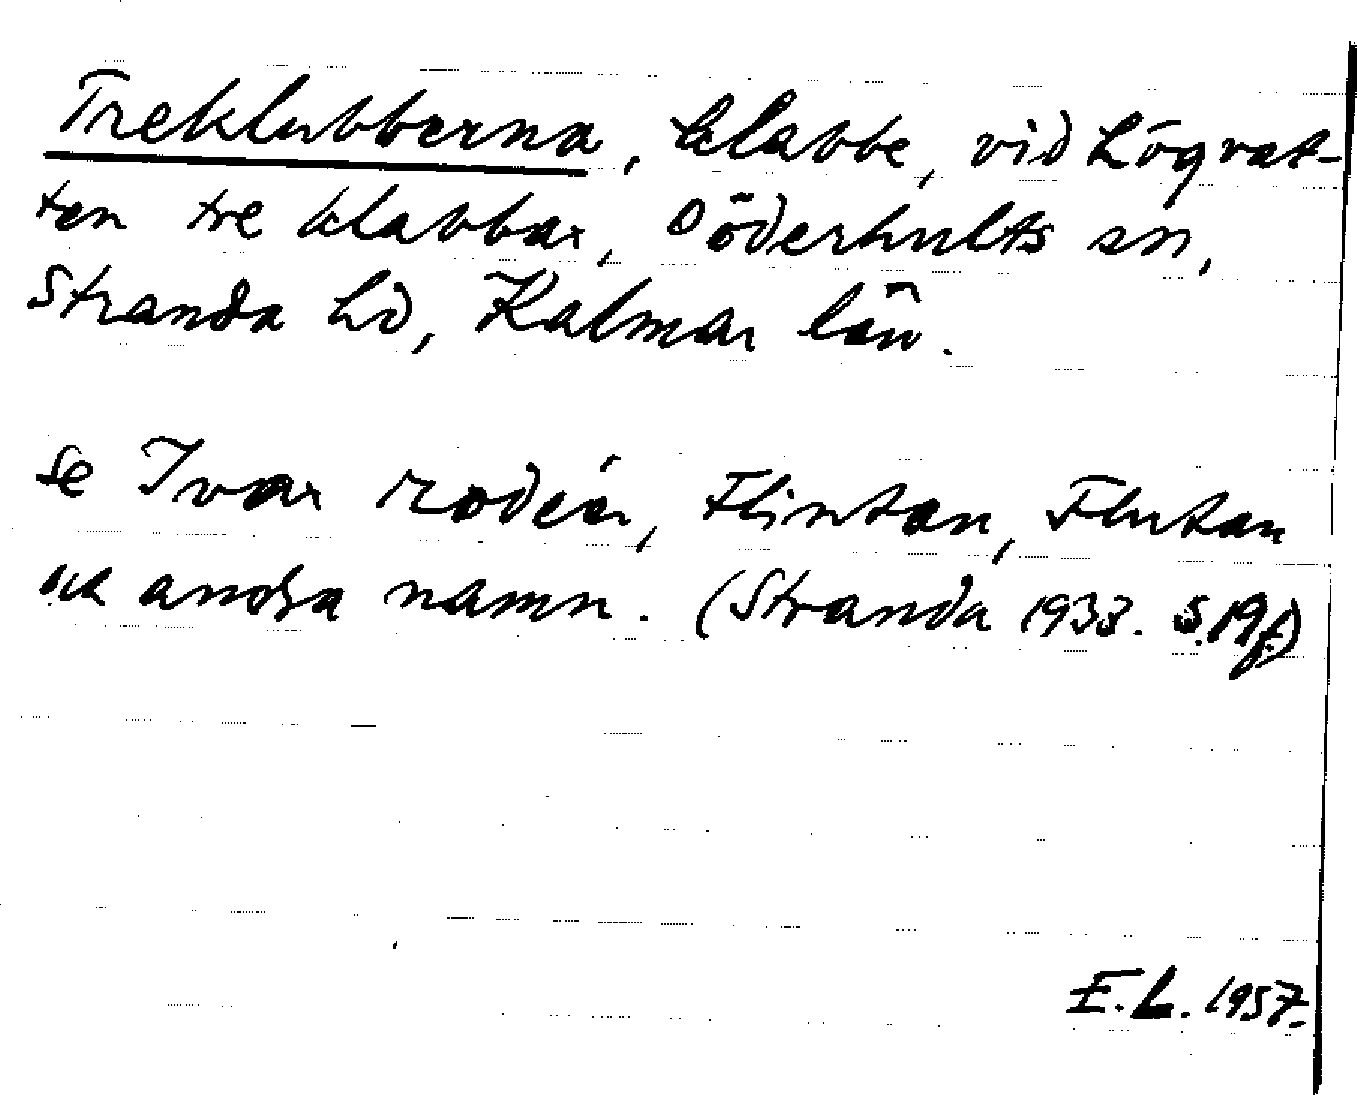 Treklubberna, klabbe, vid Högvat-
ten tre klabbar, Döderhults sn,
Stranda hd, Kalmar län.
Se Ivar Modéer, Flintan, Flutan
och andra namn. (Stranda 1933. S. 19f.)
E.L. 1957.